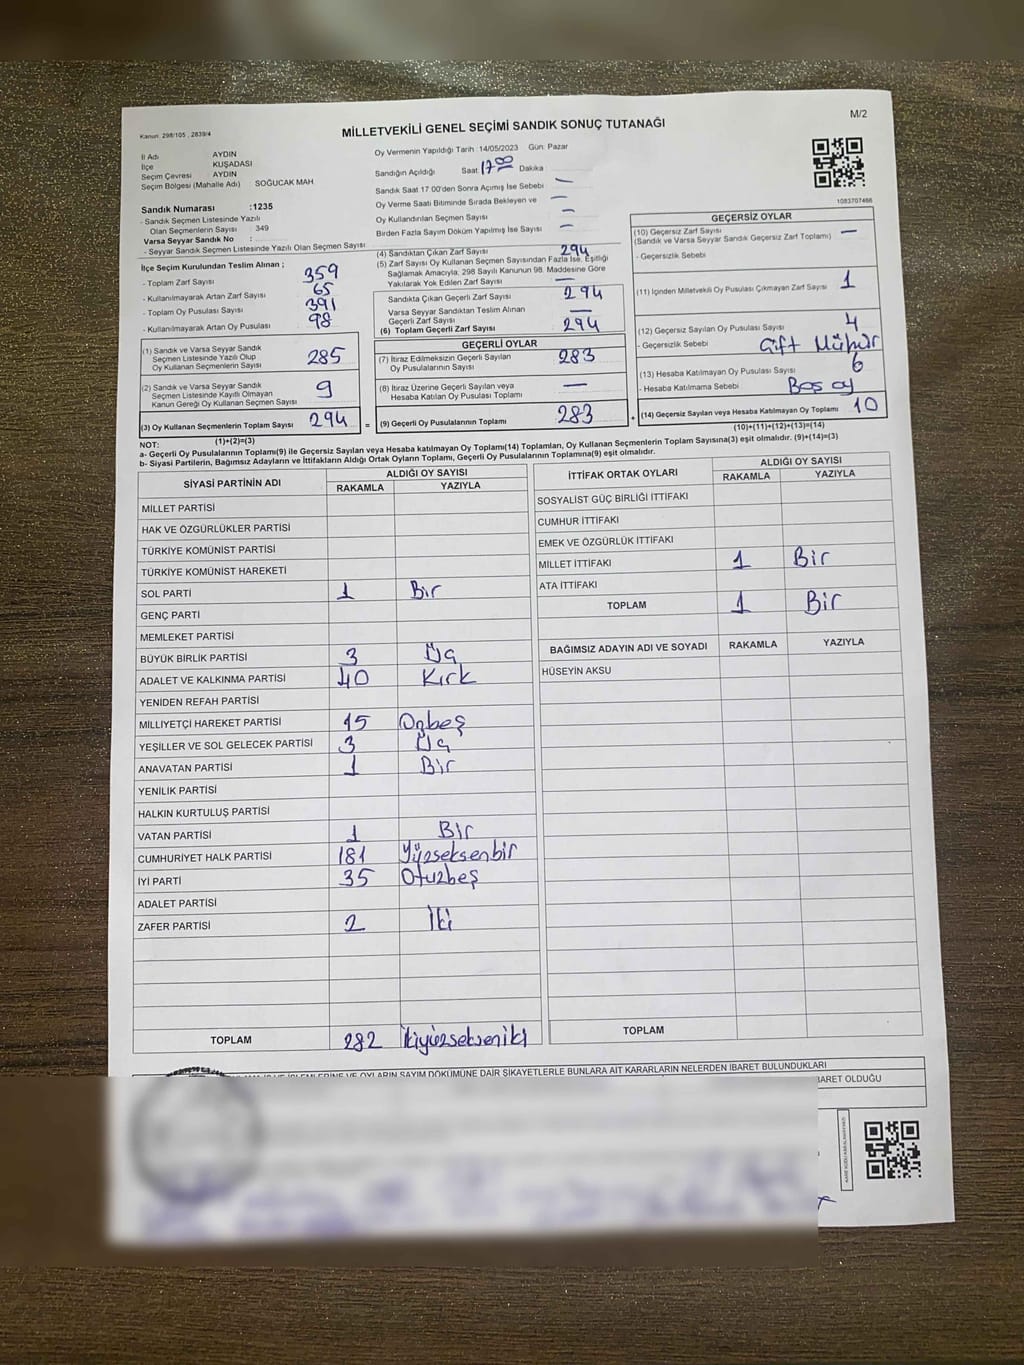 Kanun: 298/105 , 2839/4
M/2
MİLLETVEKİLİ GENEL SEÇİMİ SANDIK SONUÇ TUTANAĞI
İl Adı AYDIN
İlçe KUŞADASI
Seçim Çevresi AYDIN
Seçim Bölgesi (Mahalle Adı) SOĞUCAK MAH.
Sandık Numarası :1235
- Sandık Seçmen Listesinde Yazılı
Olan Seçmenlerin Sayısı : 349
Varsa Seyyar Sandık No :
- Seyyar Sandık Seçmen Listesinde Yazılı Olan Seçmen Sayısı
Oy Vermenin Yapıldığı Tarih : 14/05/2023 Gün: Pazar
Sandığın Açıldığı Saat 17 00 Dakika :
Sandık Saat 17.00'den Sonra Açımış İse Sebebi —
Oy Verme Saati Bitiminde Sırada Bekleyen ve —
Oy Kullandırılan Seçmen Sayısı —
Birden Fazla Sayım Döküm Yapılmış İse Sayısı —
1083707466
İlçe Seçim Kurulundan Teslim Alınan ;
- Toplam Zarf Sayısı 359
- Kullanılmayarak Artan Zarf Sayısı 65
- Toplam Oy Pusulası Sayısı 391
- Kullanılmayarak Artan Oy Pusulası 98
(1) Sandık ve Varsa Seyyar Sandık
Seçmen Listesinde Yazılı Olup
Oy Kullanan Seçmenlerin Sayısı 285
(2) Sandık ve Varsa Seyyar Sandık
Seçmen Listesinde Kayıtlı Olmayan
Kanun Gereği Oy Kullanan Seçmen Sayısı 9
(3) Oy Kullanan Seçmenlerin Toplam Sayısı 294 =
(1)+(2)=(3)
(4) Sandıktan Çıkan Zarf Sayısı 294
(5) Zarf Sayısı Oy Kullanan Seçmen Sayısından Fazla İse, Eşitliği
Sağlamak Amacıyla; 298 Sayılı Kanunun 98. Maddesine Göre
Yakılarak Yok Edilen Zarf Sayısı —
Sandıkta Çıkan Geçerli Zarf Sayısı 294
Varsa Seyyar Sandıktan Teslim Alınan
Geçerli Zarf Sayısı —
(6) Toplam Geçerli Zarf Sayısı 294
GEÇERLİ OYLAR
(7) İtiraz Edilmeksizin Geçerli Sayılan
Oy Pusulalarının Sayısı 283
(8) İtiraz Üzerine Geçerli Sayılan veya
Hesaba Katılan Oy Pusulası Toplamı —
(9) Geçerli Oy Pusulalarının Toplamı 283 +
GEÇERSİZ OYLAR
(10) Geçersiz Zarf Sayısı
(Sandık ve Varsa Seyyar Sandık Geçersiz Zarf Toplamı) —
- Geçersizlik Sebebi
(11) İçinden Milletvekili Oy Pusulası Çıkmayan Zarf Sayısı 1
(12) Geçersiz Sayılan Oy Pusulası Sayısı 4
- Geçersizlik Sebebi Çift Mühür
(13) Hesaba Katılmayan Oy Pusulası Sayısı 6
- Hesaba Katılmama Sebebi Boş oy
(14) Geçersiz Sayılan veya Hesaba Katılmayan Oy Toplamı 10
(10)+(11)+(12)+(13)=(14)
NOT:
a- Geçerli Oy Pusulalarının Toplamı(9) ile Geçersiz Sayılan veya Hesaba katılmayan Oy Toplamı(14) Toplamları, Oy Kullanan Seçmenlerin Toplam Sayısına(3) eşit olmalıdır. (9)+(14)=(3)
b- Siyasi Partilerin, Bağımsız Adayların ve İttifakların Aldığı Ortak Oyların Toplamı, Geçerli Oy Pusulalarının Toplamına(9) eşit olmalıdır.
SİYASİ PARTİNİN ADI ALDIĞI OY SAYISI
RAKAMLA YAZIYLA
MİLLET PARTİSİ
HAK VE ÖZGÜRLÜKLER PARTİSİ
TÜRKİYE KOMÜNİST PARTİSİ
TÜRKİYE KOMÜNİST HAREKETİ
SOL PARTİ 1 Bir
GENÇ PARTİ
MEMLEKET PARTİSİ
BÜYÜK BİRLİK PARTİSİ 3 Üç
ADALET VE KALKINMA PARTİSİ 40 Kırk
YENİDEN REFAH PARTİSİ
MİLLİYETÇİ HAREKET PARTİSİ 15 Onbeş
YEŞİLLER VE SOL GELECEK PARTİSİ 3 Üç
ANAVATAN PARTİSİ 1 Bir
YENİLİK PARTİSİ
HALKIN KURTULUŞ PARTİSİ
VATAN PARTİSİ 1 Bir
CUMHURİYET HALK PARTİSİ 181 Yüzseksenbir
İYİ PARTİ 35 Otuzbeş
ADALET PARTİSİ
ZAFER PARTİSİ 2 İki
TOPLAM 282 İkiyüzsekseniki
İTTİFAK ORTAK OYLARI ALDIĞI OY SAYISI
RAKAMLA YAZIYLA
SOSYALİST GÜÇ BİRLİĞİ İTTİFAKI
CUMHUR İTTİFAKI
EMEK VE ÖZGÜRLÜK İTTİFAKI
MİLLET İTTİFAKI 1 Bir
ATA İTTİFAKI
TOPLAM 1 Bir
BAĞIMSIZ ADAYIN ADI VE SOYADI RAKAMLA YAZIYLA
HÜSEYİN AKSU
TOPLAM
VE OYLARIN SAYIM DÖKÜMÜNE DAİR ŞİKAYETLERLE BUNLARA AİT KARARLARIN NELERDEN İBARET BULUNDUKLARI
OLDUĞU